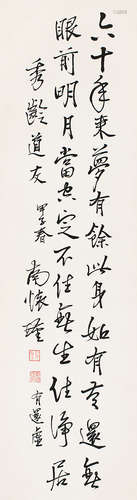 六十年來夢有餘此身如有有還無
眼前明月當空定不住無生住淨居
秀齡道友
春
南懷瑾